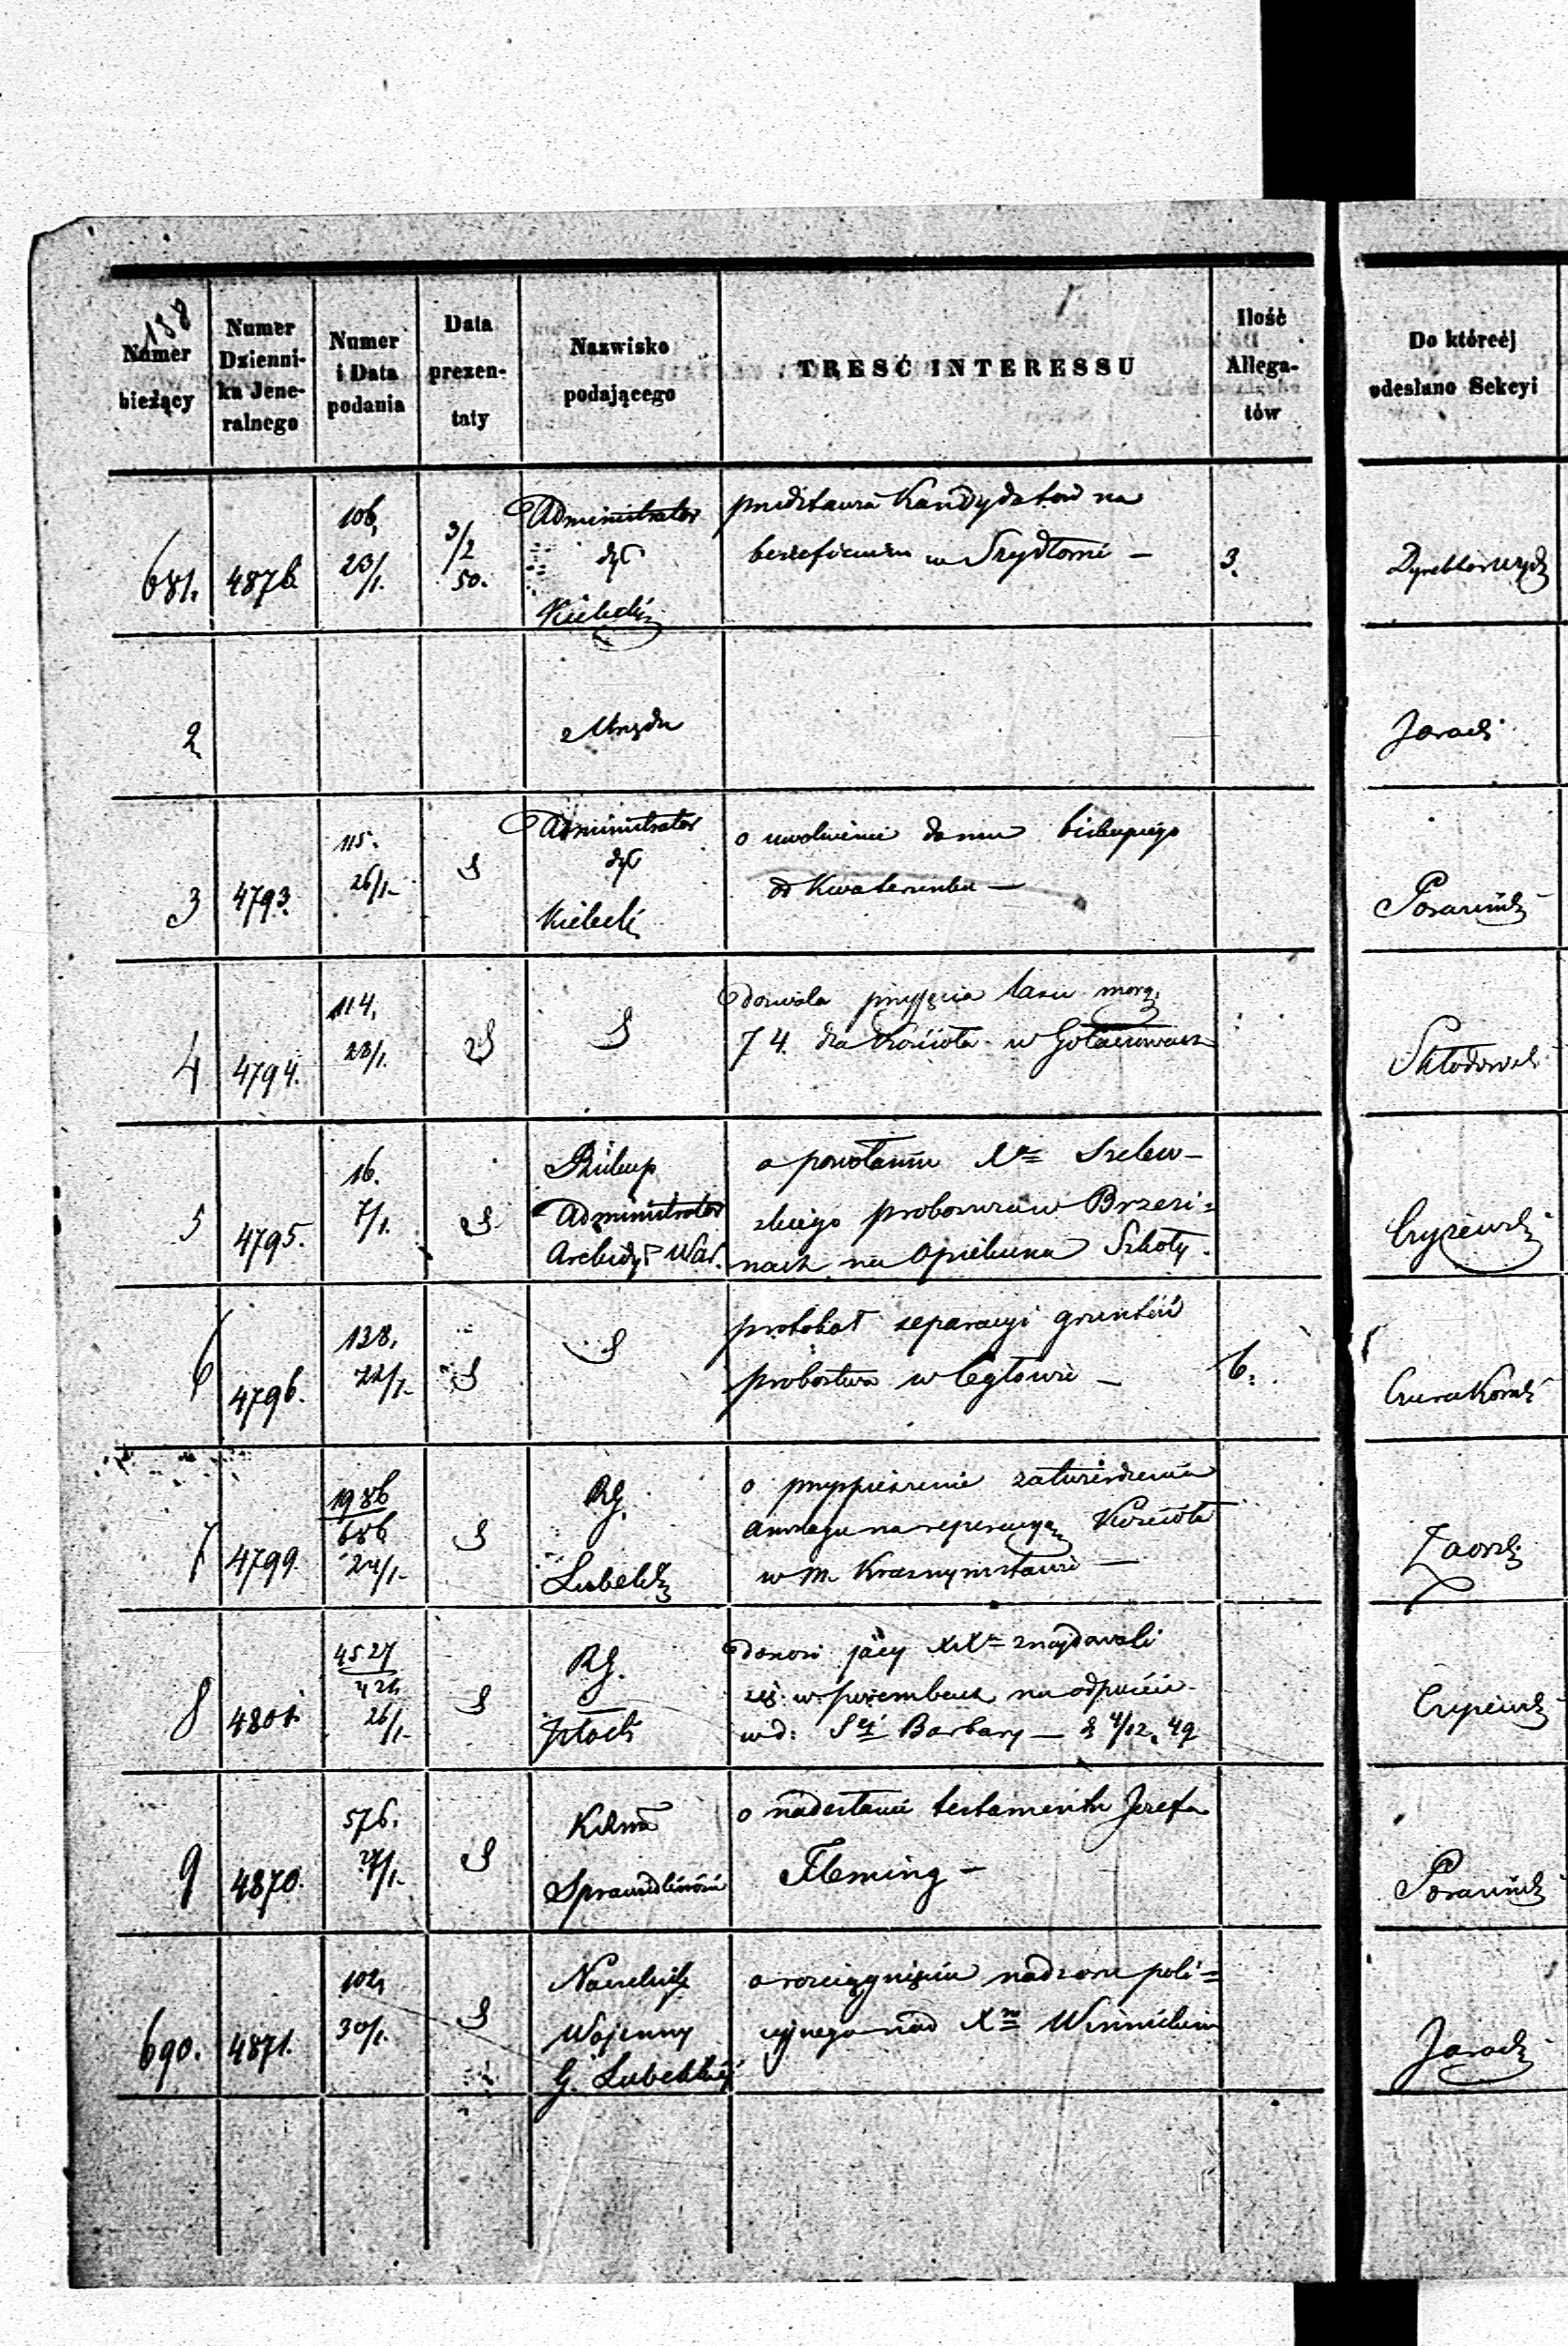 188
Numer bieżący
Numer Dzienni- ka Jene- ralnego
Numer i Data podania
Data prezen- taty
Nazwisko podającego
TREŚĆ INTERESSU
Ilość Allega- tów
Do któreéj odesłano Sekcyi
681. 4876. 106, 23/1. 3/2 50. Administrator dyć Kielecki
przedstawia Kandydatów na
beneficium w Szydłowie — 3.
2 z Urzędu Jarocki
3 4793. 115. 26/1 S Administrator dyć Kielecki
o uwolnienie domu biskupiego
od Kwaterunku —
4 4794. 114, 23/1. S S
dozwala przyjęcia lasu morg.
74. dla Kościoła w Gołaczewach
5 4795. 16. 7/1. S Biskup Administrator Archidy: War.
o powołaniu Xa Szelew-
skiego proboszcza w Brzezi=
nach na Opiekuna Szkoły.
6 4796. 138. 22/1 S S
protokół separacyi gruntów
probostwa w Cegłowie — 6.
7 4799. 1986 686 24/1 S RG. Lubelski
o przyspieszenie zatwierdzenia
anszlagu na reperacyą Kościoła
w m. Krasnymstawie — Zaorski
8 4801. 4527 426 26/1 S RG. Płocki
donosi jacy XXa znajdowali
się w Porembach na odpuście
w d: Stéj Barbary — d 4/12. 49
9 4870. 576. 24/1. S Kssya Sprawiedliwości
o nadesłanie testamentu Józefa
Fleming —
690. 4871. 102, 30/1. S Naczelnik Wojenny G. Lubelskiéj
o rozciągnięciu nadzoru poli=
cyjnego nad Xm Winnickim Jarocki